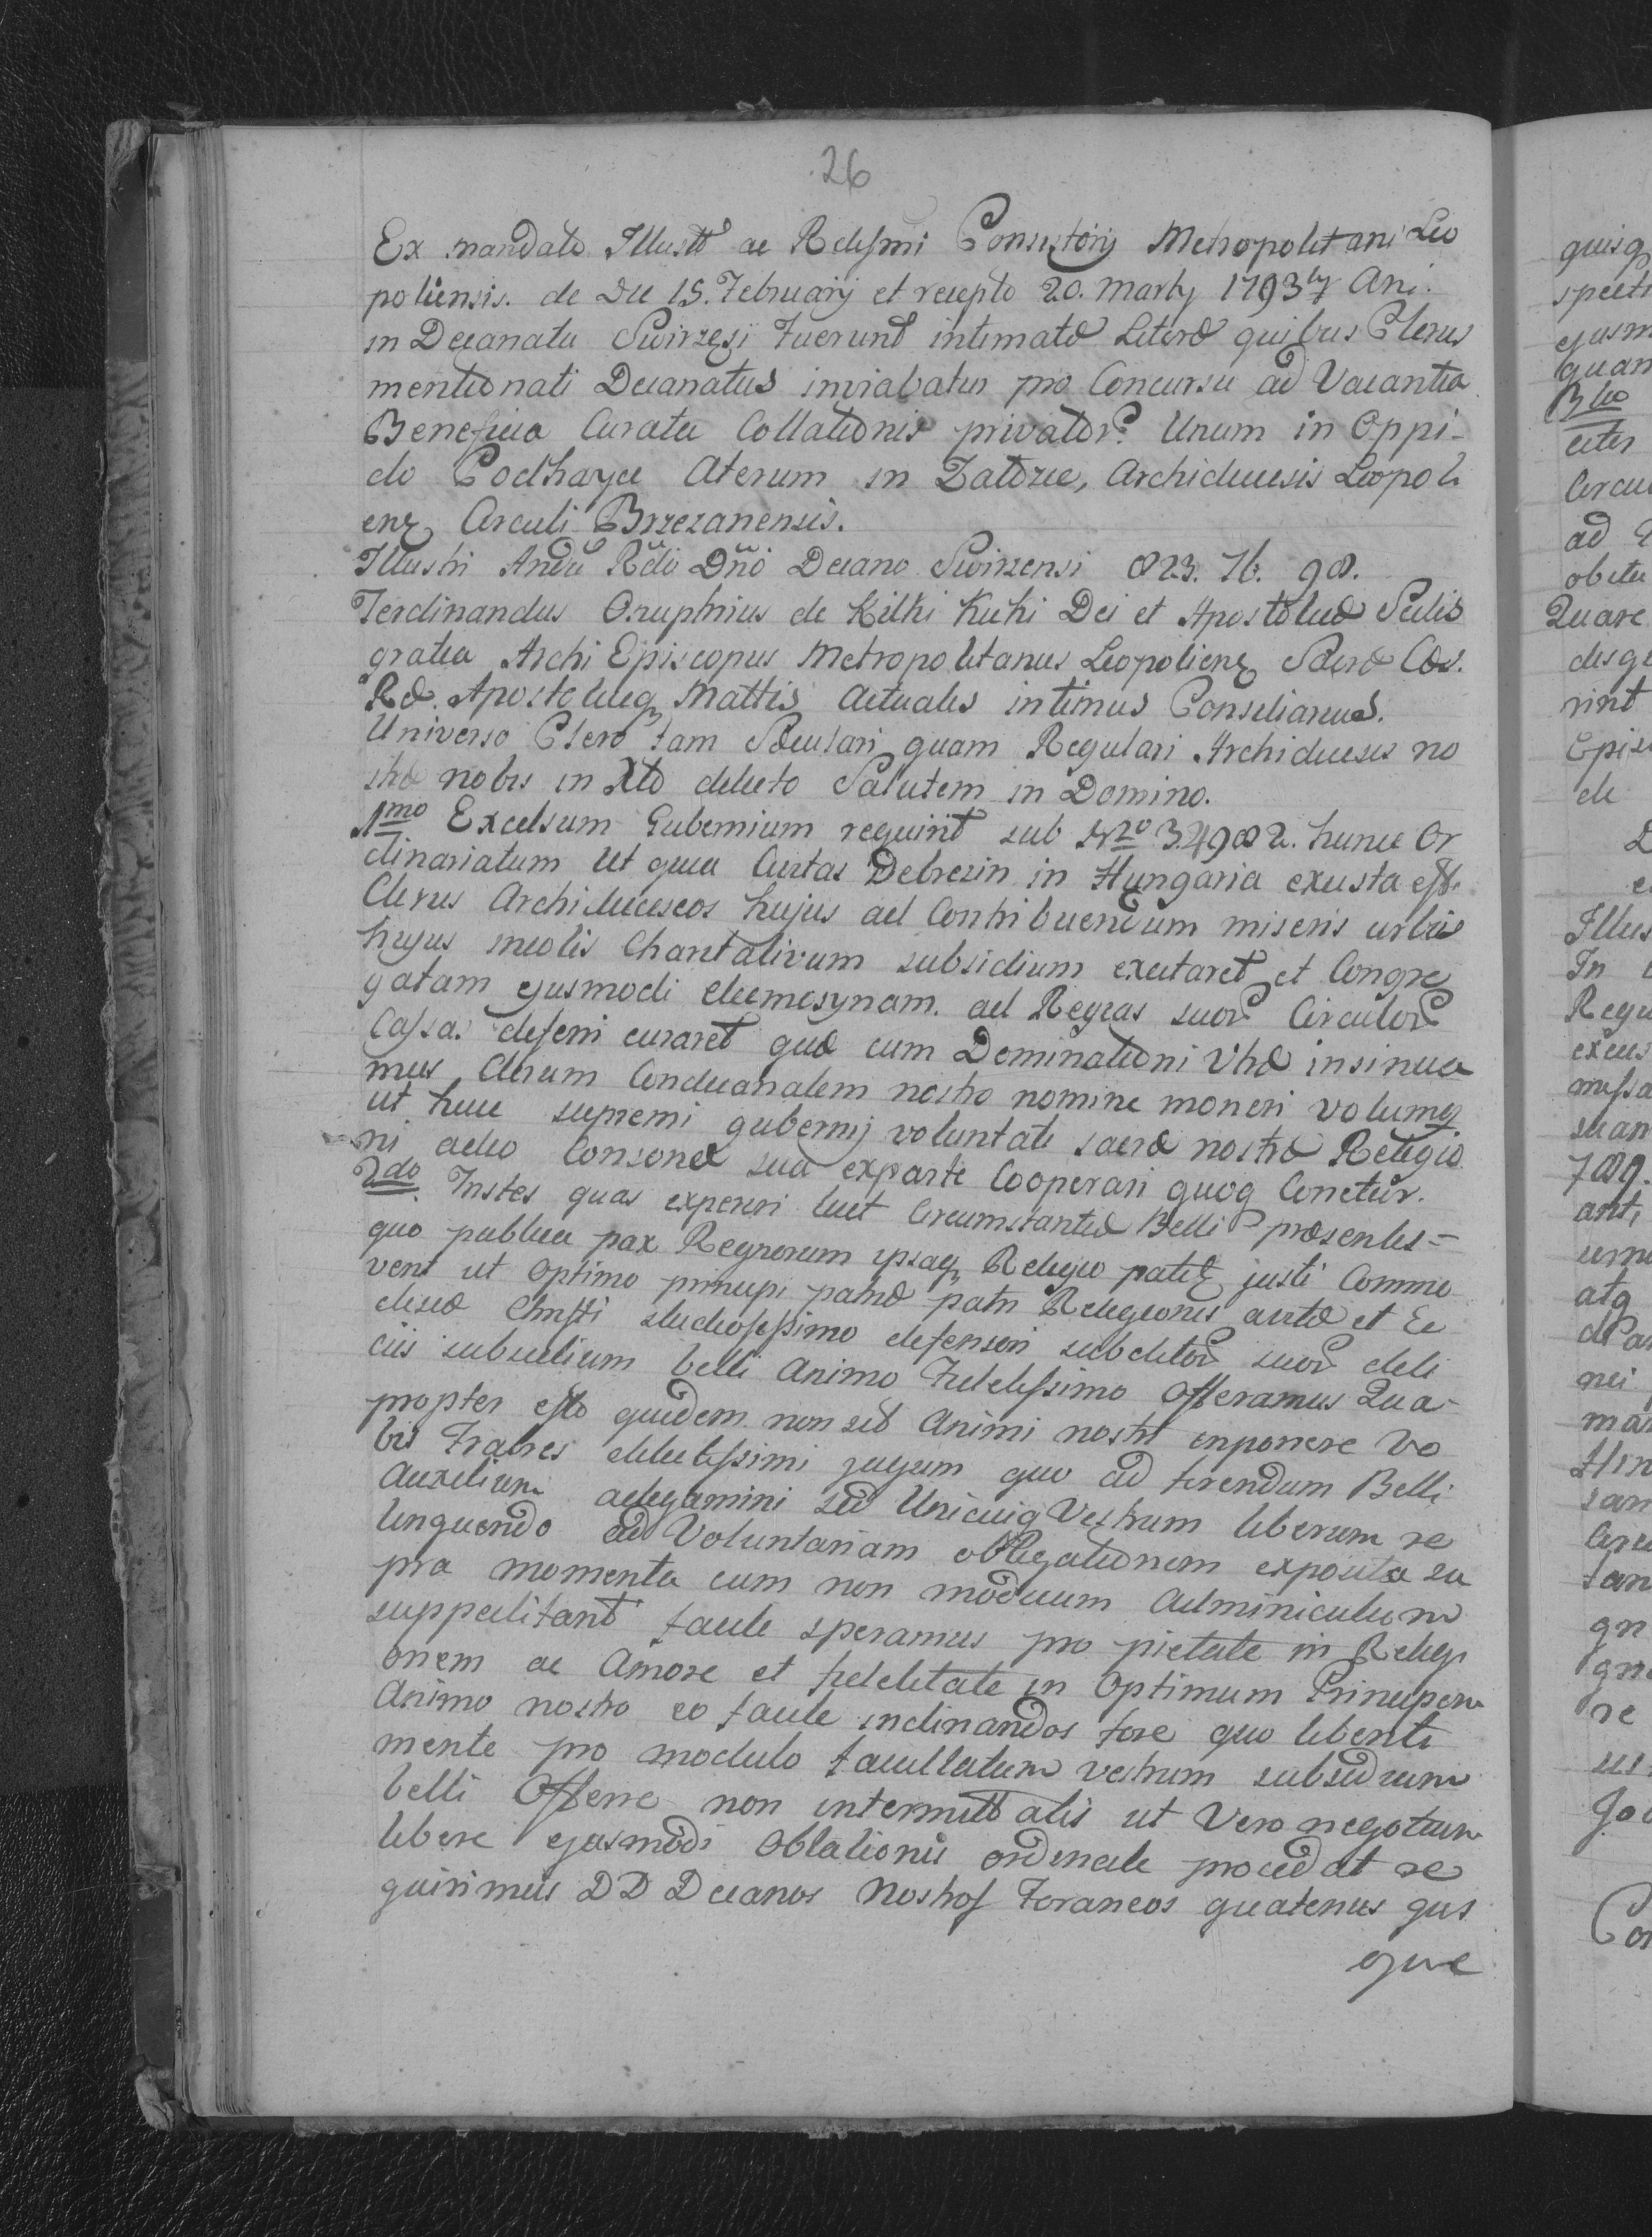 26
Ex mandato Illustr ac Rdissmi Consistorij Metropolitani Leo
poliensis. de Die 15. Februarij et recepto 20. Martij 1793 Ani.
in Decanatu Swirzesi Fuerunt intimatæ Literæ quibus Clerus
mentionati Decanatus inviabatur pro Concursu ad Vacantia
Beneficia Curata Collationis privator. Unum in Oppi-
do Podhayce Aterum in Zalozce, Archidiecesis Leopoli
enz Circuli Brzezanensis.
Illustri Andu Rdo Dno Decano Swirzensi 823. 76. 98.
Ferdinandus Onuphrius de Kitki Kicki Dei et Apostolicæ Sedis
gratia Archi Episcopus Metropolitanus Leopolienz Sacræ Cæs.
Ræ. Apostolicæq Mattis Actualis intimus Consiliarius.
Universo Clero tam Sæculari quam Regulari Archidiecesis no
stræ nobis in Xto dilecto Salutem in Domino.
1mo Excelsum Gubernium requirit sub Nro 34982. hunce Or
dinariatum Ut quia Civitas Debrezin in Hungaria exusta est
Clerus Archidieceseos hujus ad Contribuendum miseris urbis
hujus incolis Charitativum subsidium excitaret et Congre
gatam ejusmodi elicemosynam. ad Regias suor Circulor
Cassa. deferri curaret quæ cum Dominationi Vræ insinua
mus Clerum Condecanalem nostro nomine moneri volumq
ut huic supremi gubernij voluntati sacræ nostræ Religio
ni adeo Consonæ sua exparte Cooperari quoq Conetur.
2do Tristes quas experiri licet Circumstantiæ Belli præsentis=
quo publica pax Regnorum ipsaq Religio patitz justi Commo
vent ut Optimo principi patriæ patri Religionis avitæ et Ec
clesiæ Christi studiosissimo defensori subditor suor deli
ciis subsidium belli Animo Fidelissimo Offeramus Qua-
propter esto quidem non sit Animi nostri inponere Vo
bis Fratres dilectissimi jugum quo ad ferendum Belli
Auxilium adigamini sed Unicuiq Vestrum liberum re
linquendo ad Voluntariam obligationem exposita su
pra momenta cum non modicum Adminiculum
suppeditant facile speramus pro pietate in Religi
onem ac Amore et fidelitate in Optimum Principem
Animo nostro eo facile inclinandos fore quo libenti
mente pro modulo facultatum vestrum subsidium
belli Offerre non intermittatis ut Vero negotium
libere ejusmodi Oblationis ordinate procedat re
quirimus DD Decanos Nostros Foraneos quatenus quis
que